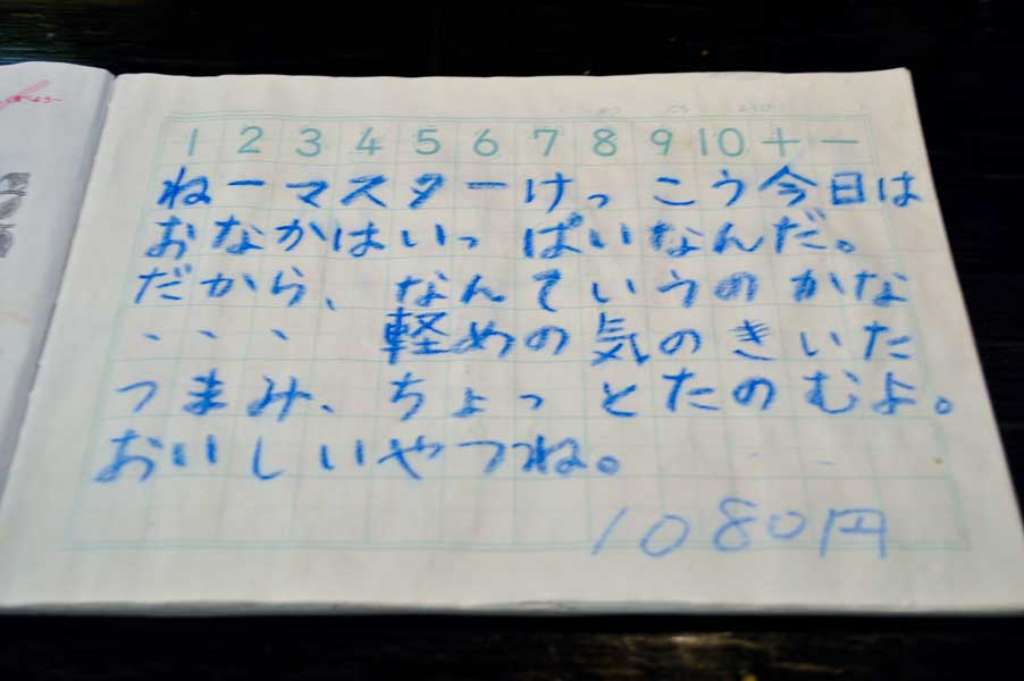 1 2 3 4 5 6 7 8 9 10 + −
ねーマスターけっこう今日は
おなかはいっぱいなんだ。
だから、なんていうのかな
、、、軽めの気のきいた
つまみ、ちょっとたのむよ。
おいしいやつね。
1080円